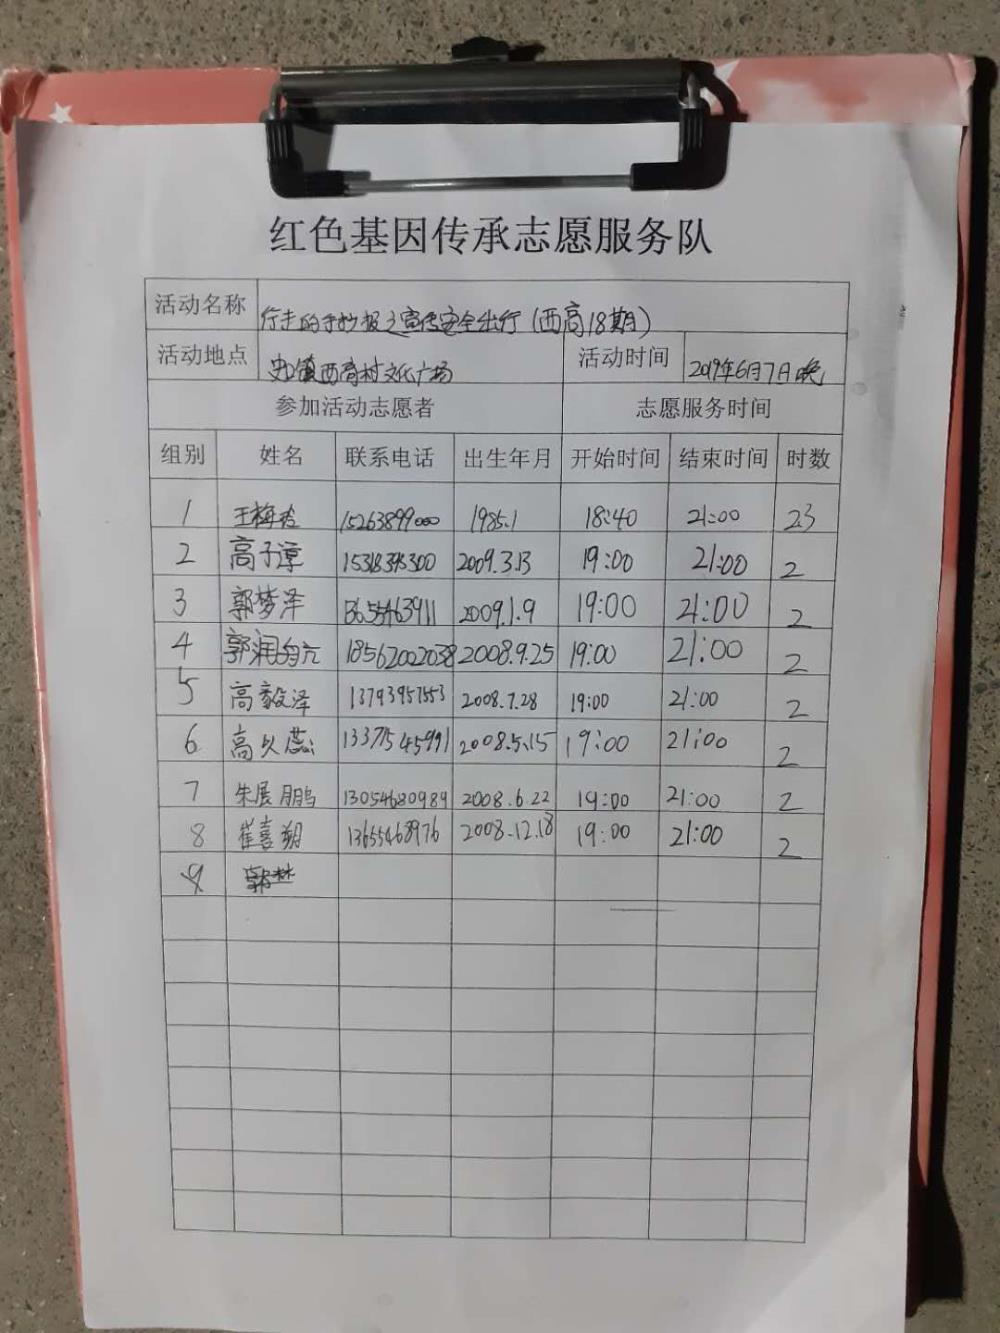 红色基因传承志愿服务队
活动名称 行走的手抄报之宣传安全出行（西高18期）
活动地点 史镇西高村文化广场 活动时间 2019年6月7日晚
参加活动志愿者 志愿服务时间
组别 姓名 联系电话 出生年月 开始时间 结束时间 时数
1 王梅 15263899000 1985.1 18:40 21:00 23
2 高子 2009.3.13 19:00 21:00 2
3 郭梦泽 2009.1.9 19:00 21:00 2
4 郭润 18562002038 2008.9.25 19:00 21:00 2
5 高毅泽 13793957553 2008.7.28 19:00 21:00 2
6 高久蕊 1337545991 2008.5.15 19:00 21:00 2
7 朱展鹏 13054680989 2008.6.22 19:00 21:00 2
8 崔喜朔 13655468976 2008.12.18 19:00 21:00 2
9